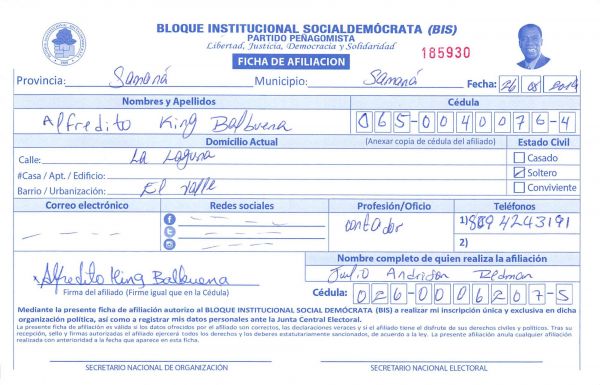 BLOQUE INSTITUCIONAL SOCIALDEMÓCRATA (BIS)
PARTIDO PEÑAGOMISTA
Libertad, Justicia, Democracia y Solidaridad
FICHA DE AFILIACION
185930
Provincia: Samaná Municipio: Samaná Fecha: 26 08 2019
Nombres y Apellidos Cédula
Alfredito King Balbuena 065-0040076-4
Domicilio Actual (Anexar copia de cédula del afiliado) Estado Civil
Calle: La Laguna Casado
#Casa / Apt. / Edificio: Soltero
Barrio / Urbanización: El Valle Conviviente
Correo electrónico Redes sociales Profesión/Oficio Teléfonos
contador 1) 809 4243191
2)
Nombre completo de quien realiza la afiliación
Alfredito King Balbuena Julio Andrison Redman
Firma del afiliado (Firme igual que en la Cédula) Cédula: 026-0006207-5
Mediante la presente ficha de afiliación autorizo al BLOQUE INSTITUCIONAL SOCIAL DEMÓCRATA (BIS) a realizar mi inscripción única y exclusiva en dicha
organización política, así como a registrar mis datos personales ante la Junta Central Electoral.
La presente ficha de afiliación es válida si los datos ofrecidos por el afiliado son correctos, las declaraciones veraces y si el afiliado tiene el disfrute de sus derechos civiles y políticos. Tras su
recepción, sello y firmas autorizadas el afiliado ejercerá todos los derechos y los deberes estatutariamente sancionados, de acuerdo a la ley. La presente afiliación anula cualquier afiliación
realizada con anterioridad a la fecha que aparece en esta ficha.
SECRETARIO NACIONAL DE ORGANIZACIÓN SECRETARIO NACIONAL ELECTORAL